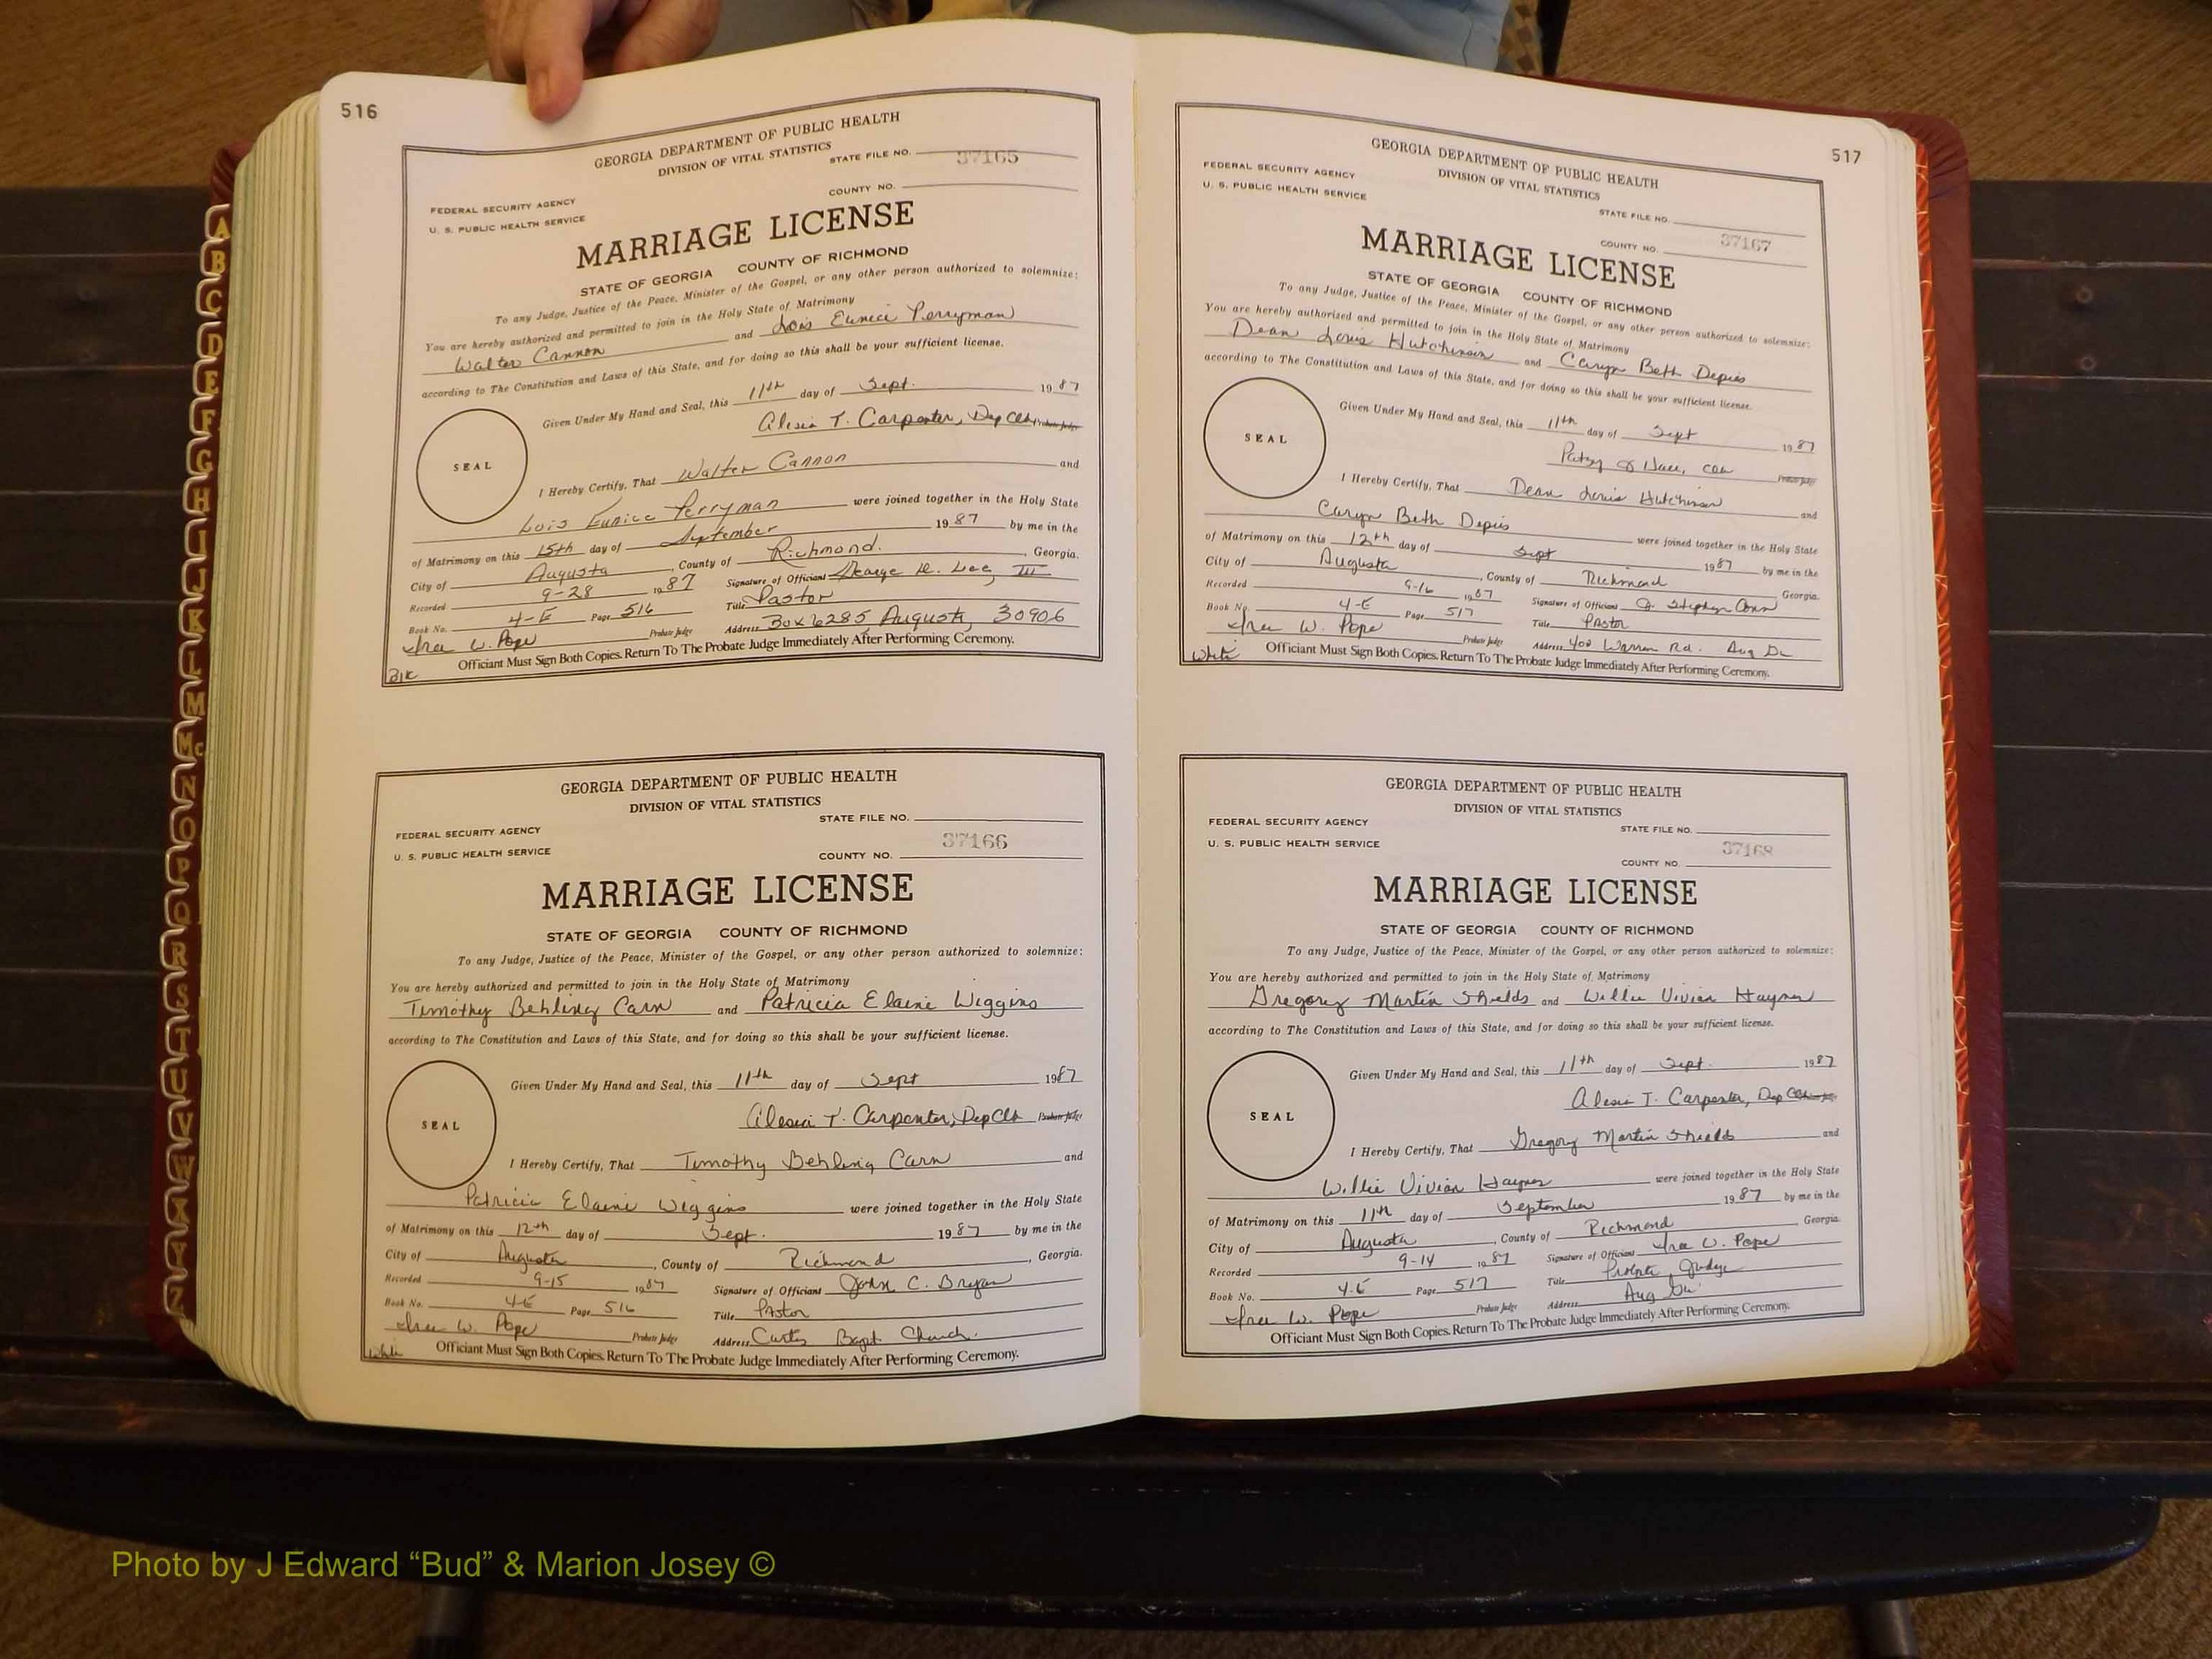 516
GEORGIA DEPARTMENT OF PUBLIC HEALTH
DIVISION OF VITAL STATISTICS
STATE FILE NO. 37165
COUNTY NO.
FEDERAL SECURITY AGENCY
U. S. PUBLIC HEALTH SERVICE
MARRIAGE LICENSE
STATE OF GEORGIA COUNTY OF RICHMOND
To any Judge, Justice of the Peace, Minister of the Gospel, or any other person authorized to solemnize:
You are hereby authorized and permitted to join in the Holy State of Matrimony
Walter Cannon and Lois Eunice Perryman
according to The Constitution and Laws of this State, and for doing so this shall be your sufficient license.
Given Under My Hand and Seal, this 11th day of Sept. 1987
Alesia T. Carpenter, Dep Clk Probate Judge
SEAL
I Hereby Certify, That Walter Cannon and
Lois Eunice Perryman were joined together in the Holy State
of Matrimony on this 15th day of September 1987 by me in the
City of Augusta, County of Richmond, Georgia.
Recorded 9-28 1987 Signature of Officiant George Lee, III
Book No. 4-E Page 516 Title Pastor
W. Pope Probate Judge Address Box 6285 Augusta, 30906
Officiant Must Sign Both Copies. Return To The Probate Judge Immediately After Performing Ceremony.
Blk
GEORGIA DEPARTMENT OF PUBLIC HEALTH
DIVISION OF VITAL STATISTICS
STATE FILE NO.
FEDERAL SECURITY AGENCY
37166
U. S. PUBLIC HEALTH SERVICE
COUNTY NO.
MARRIAGE LICENSE
STATE OF GEORGIA COUNTY OF RICHMOND
To any Judge, Justice of the Peace, Minister of the Gospel, or any other person authorized to solemnize:
You are hereby authorized and permitted to join in the Holy State of Matrimony
Timothy Behling Carn and Patricia Elaine Wiggins
according to The Constitution and Laws of this State, and for doing so this shall be your sufficient license.
Given Under My Hand and Seal, this 11th day of Sept 1987
Alesia T. Carpenter, Dep Clk Probate Judge
SEAL
I Hereby Certify, That Timothy Behling Carn and
Patricia Elaine Wiggins were joined together in the Holy State
of Matrimony on this 12th day of Sept. 1987 by me in the
City of Augusta, County of Richmond, Georgia.
Recorded 9-15 1987 Signature of Officiant John C. Bryan
Book No. 4-E Page 516 Title Pastor
W. Pope Probate Judge Address Curtis Bapt Church.
Officiant Must Sign Both Copies. Return To The Probate Judge Immediately After Performing Ceremony.
White
517
GEORGIA DEPARTMENT OF PUBLIC HEALTH
DIVISION OF VITAL STATISTICS
FEDERAL SECURITY AGENCY
U. S. PUBLIC HEALTH SERVICE
STATE FILE NO.
COUNTY NO. 37167
MARRIAGE LICENSE
STATE OF GEORGIA COUNTY OF RICHMOND
To any Judge, Justice of the Peace, Minister of the Gospel, or any other person authorized to solemnize:
You are hereby authorized and permitted to join in the Holy State of Matrimony
Dean Louis Hutchinson and Caryn Beth Depies
according to The Constitution and Laws of this State, and for doing so this shall be your sufficient license.
Given Under My Hand and Seal, this 11th day of Sept 1987
Probate Judge
SEAL
I Hereby Certify, That Dean Louis Hutchinson and
Caryn Beth Depies were joined together in the Holy State
of Matrimony on this 12th day of Sept 1987 by me in the
City of Augusta, County of Richmond Georgia.
Recorded 9-16 1987 Signature of Officiant Stephen
Book No. 4-E Page 517 Title Pastor
W. Pope Probate Judge Address 402 Warren Rd. Aug Ga
Officiant Must Sign Both Copies. Return To The Probate Judge Immediately After Performing Ceremony.
White
GEORGIA DEPARTMENT OF PUBLIC HEALTH
DIVISION OF VITAL STATISTICS
FEDERAL SECURITY AGENCY
STATE FILE NO.
U. S. PUBLIC HEALTH SERVICE
37168
COUNTY NO.
MARRIAGE LICENSE
STATE OF GEORGIA COUNTY OF RICHMOND
To any Judge, Justice of the Peace, Minister of the Gospel, or any other person authorized to solemnize:
You are hereby authorized and permitted to join in the Holy State of Matrimony
Gregory Martin Shields and Willie Vivian Haynes
according to The Constitution and Laws of this State, and for doing so this shall be your sufficient license.
Given Under My Hand and Seal, this 11th day of Sept. 1987
Alesia T. Carpenter, Dep Clk
SEAL
I Hereby Certify, That Gregory Martin Shields and
Willie Vivian Haynes were joined together in the Holy State
of Matrimony on this 11th day of September 1987 by me in the
City of Augusta, County of Richmond Georgia.
Recorded 9-14 1987 Signature of Officiant W. Pope
Book No. 4-E Page 517 Title Probate Judge
W. Pope Probate Judge Address Aug Ga
Officiant Must Sign Both Copies. Return To The Probate Judge Immediately After Performing Ceremony.
A
B
C
D
E
F
G
H
I
J
K
L
M
Mc
N
O
P
Q
R
S
T
U
V
W
X
Y
Z
Photo by J Edward “Bud” & Marion Josey ©